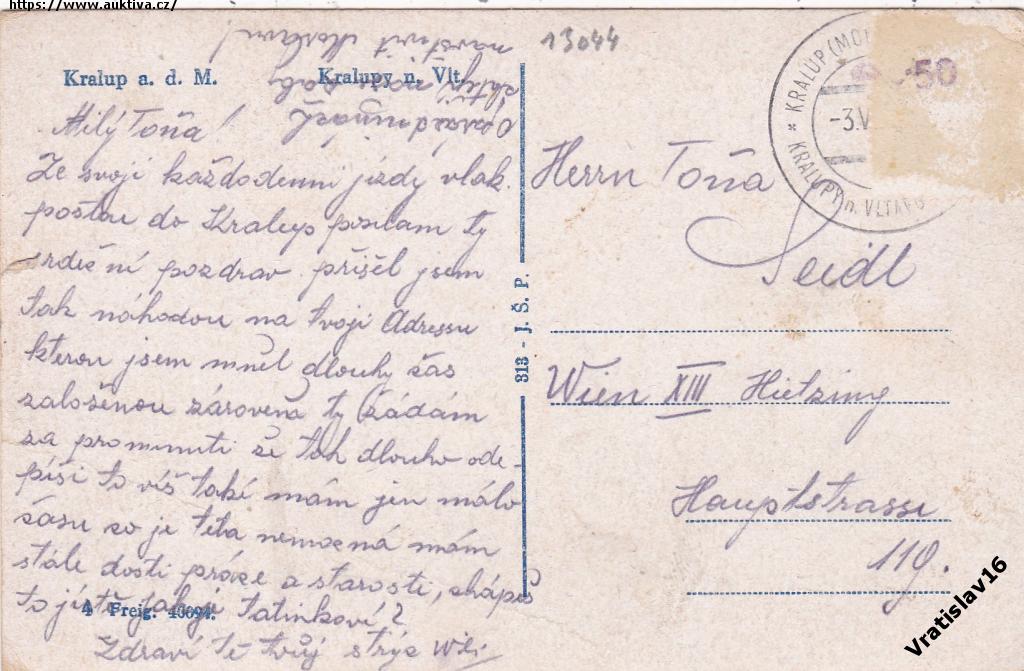 https://www.auktiva.cz/
13044
Kralup a. d. M. Kralupy n. Vlt.
KRALUP (MOL
KRALUPY n. VLTAVO
-3.V
50
Milý Toňa!
Ze svoji každodenni jízdy vlak.
poštou do Kralup posilam ty
srdečni pozdrav přišel jsem
tak náhodou na tvoji Adressu
kterou jsem mněl dlouhy čas
založenou zároveňa ty žádám
za prominuti že tak dlouho ode-
píši to víš také mám jen málo
času so je teta nemocná mám
stále dosti práce a starosti, chápeš
to jistě tatinkovi?
Zdraví tě tvůj strýc
navštívit
313 - J. Š. P.
Herrn Toňa
Seidl
Wien XIII Hietzing
Hauptstrasse
119.
4 Freig. 40094.
Vratislav16